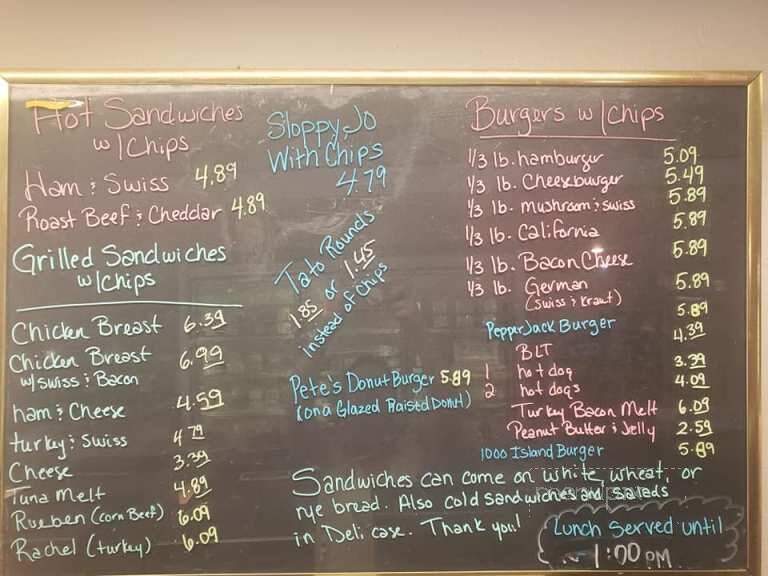 Hot Sandwiches
w/Chips
Ham & Swiss 4.89
Roast Beef & Cheddar 4.89
Grilled Sandwiches
w/chips
Chicken Breast 6.39
Chicken Breast 6.99
w/swiss & Bacon
ham & Cheese 4.59
turkey & Swiss 4.79
Cheese 3.39
Tuna Melt 4.89
Rueben (corn Beef) 6.09
Rachel (turkey) 6.09
Sloppy Jo
With Chips
4.79
Tato Rounds
1.85 or 1.45
instead of Chips
Pete's Donut Burger 5.89
(on a Glazed Raised Donut)
Burgers w/chips
1/3 lb. hamburger 5.09
1/3 lb. Cheeseburger 5.49
1/3 lb. Mushroom & swiss 5.89
1/3 lb. California 5.89
1/3 lb. Bacon Cheese 5.89
1/3 lb. German 5.89
(swiss & kraut)
PepperJack Burger 5.89
BLT 4.39
1 hot dog 3.39
2 hot dogs 4.09
Turkey Bacon Melt 6.09
Peanut Butter & Jelly 2.59
1000 Island Burger 5.89
Sandwiches can come on white, wheat, or
rye bread. Also cold sandwiches and salads
in Deli case. Thank you!
Lunch Served until
1:00 PM